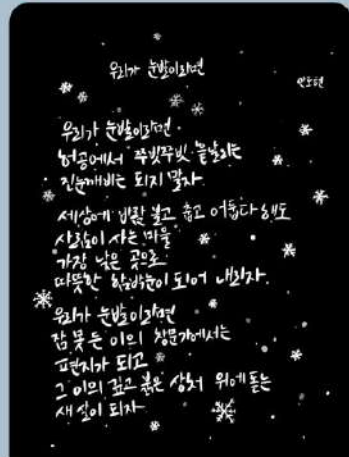 우리가 눈발이라면
안도현
우리가 눈발이라면
허공에서 쭈빗쭈빗 흩날리는
진눈깨비는 되지 말자
세상에 바람 불고 춥고 어둡다 해도
사람이 사는 마을
가장 낮은 곳으로
따뜻한 함박눈이 되어 내리자
우리가 눈발이라면
잠 못 든 이의 창문가에서는
편지가 되고
그 이의 깊고 붉은 상처 위에 돋는
새 살이 되자